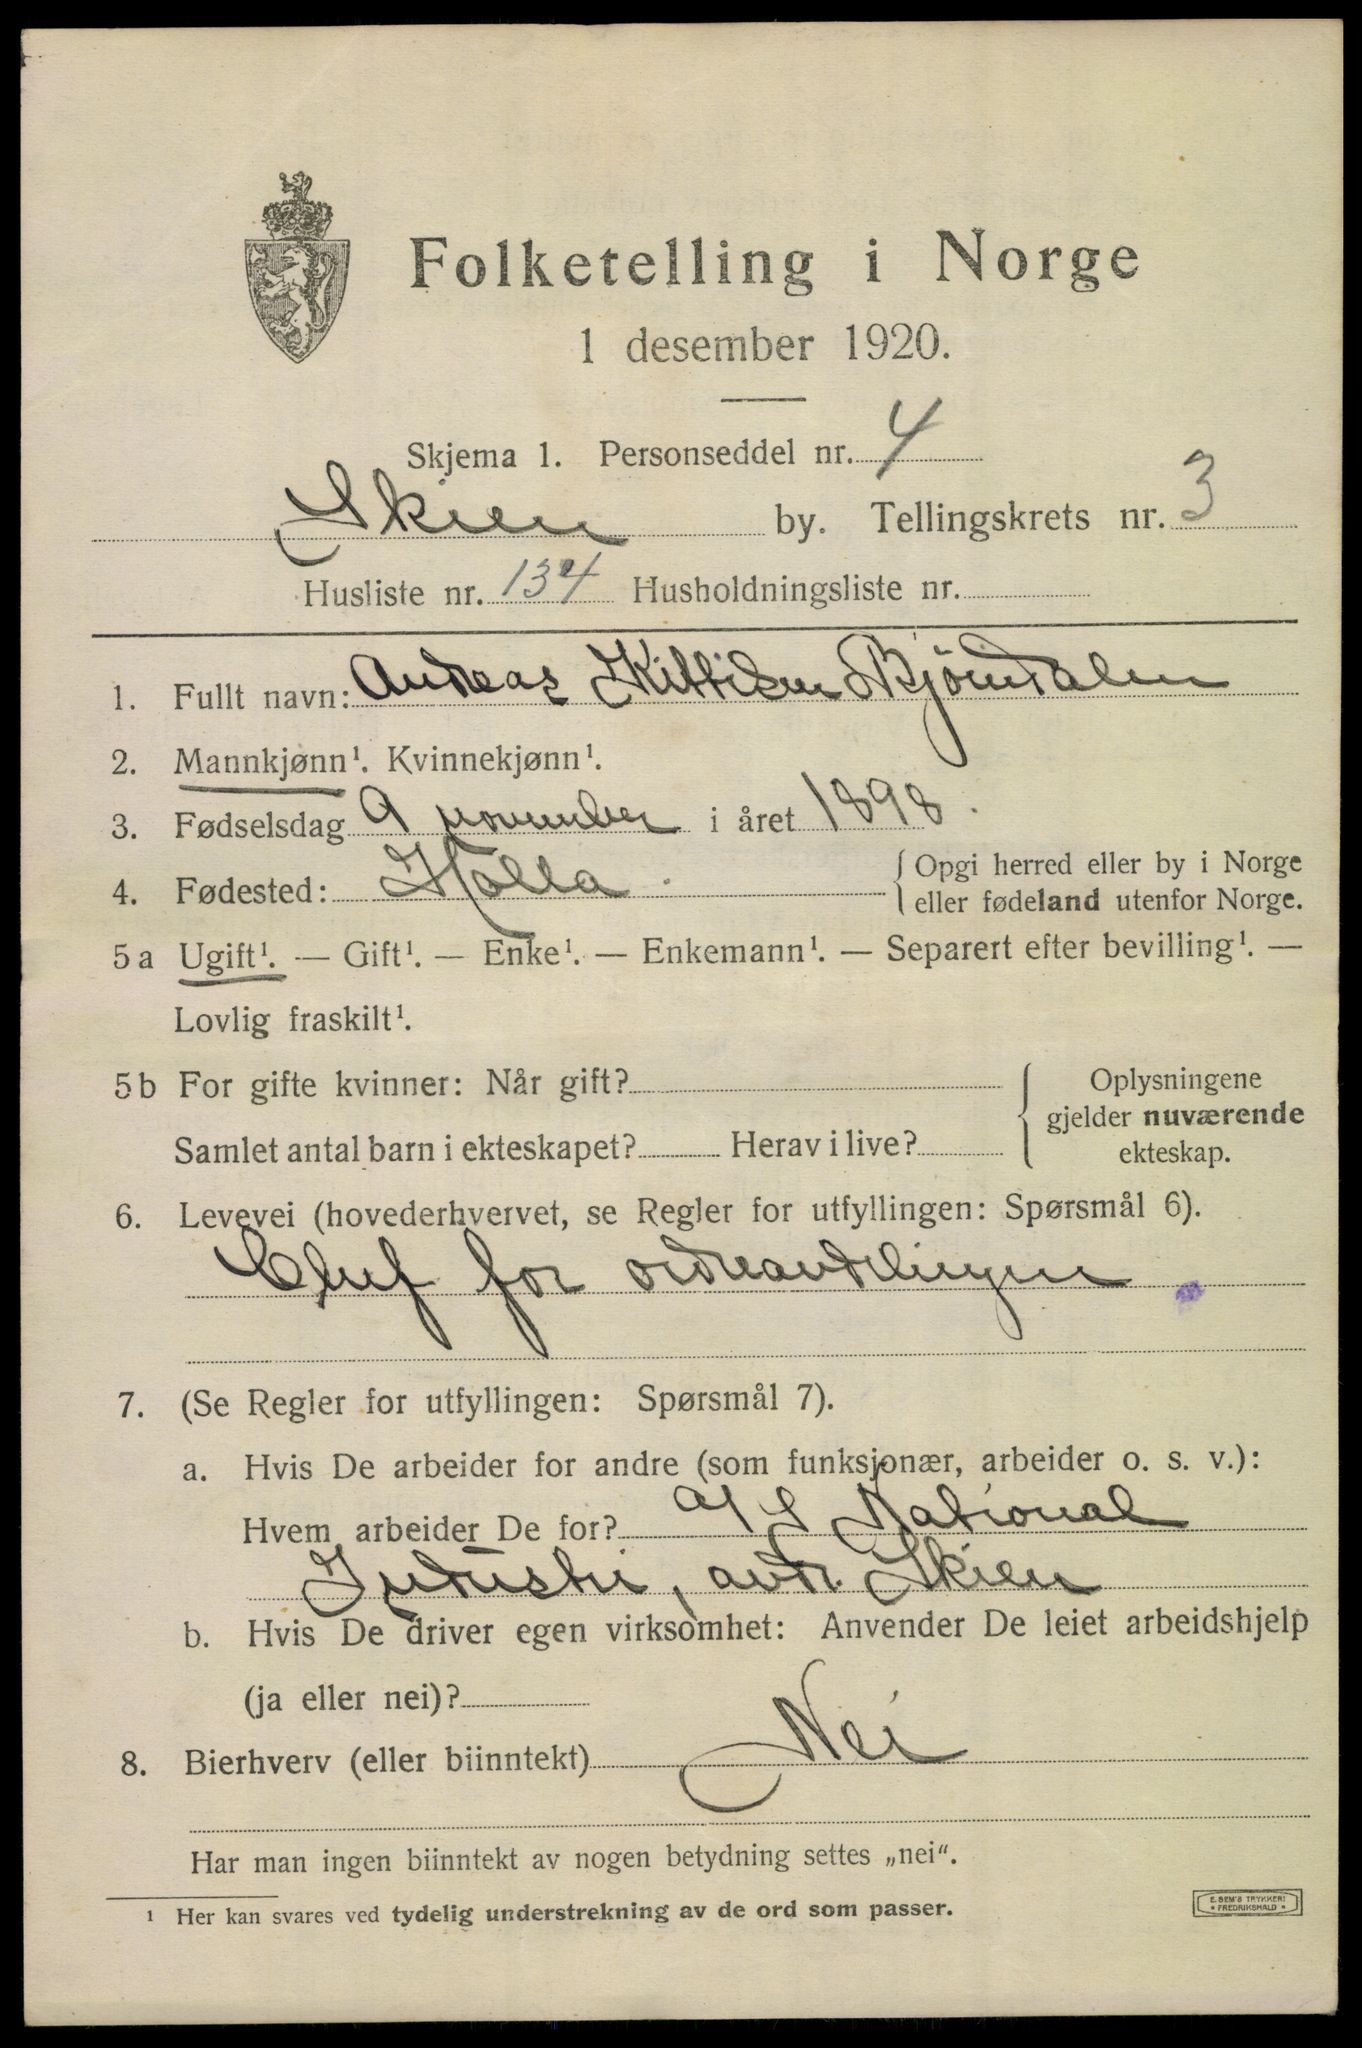 Folketelling i Norge
1 desember 1920.
Skjema 1. Personseddel nr. 4
Skien by. Tellingskrets nr. 3
Husliste nr. 134 Husholdningsliste nr.
1. Fullt navn: Andreas Kittilsen Bjørndalen
2. Mannkjønn¹. Kvinnekjønn¹.
3. Fødselsdag 9 november i året 1898.
4. Fødested: Holla.
{ Opgi herred eller by i Norge
eller fødeland utenfor Norge.
5 a Ugift¹. — Gift¹. — Enke¹. — Enkemann¹. — Separert efter bevilling¹. —
Lovlig fraskilt¹.
5 b For gifte kvinner: Når gift?
Samlet antal barn i ekteskapet? Herav i live?
{ Oplysningene
gjelder nuværende
ekteskap.
6. Levevei (hovederhvervet, se Regler for utfyllingen: Spørsmål 6).
Chef for ordreavdelingen
7. (Se Regler for utfyllingen: Spørsmål 7).
a. Hvis De arbeider for andre (som funksjonær, arbeider o. s. v.):
Hvem arbeider De for? A/S National
Industri, avd. Skien
b. Hvis De driver egen virksomhet: Anvender De leiet arbeidshjelp
(ja eller nei)?
8. Bierhverv (eller biinntekt) Nei
Har man ingen biinntekt av nogen betydning settes „nei“.
¹ Her kan svares ved tydelig understrekning av de ord som passer.
E. SEM'S TRYKKERI
* FREDRIKSHALD *